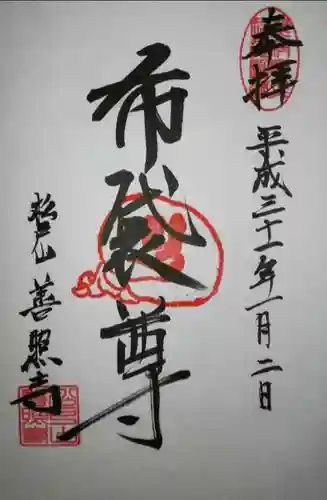 奉拝
平成三十一年一月二日
布袋尊
松光山 善照寺